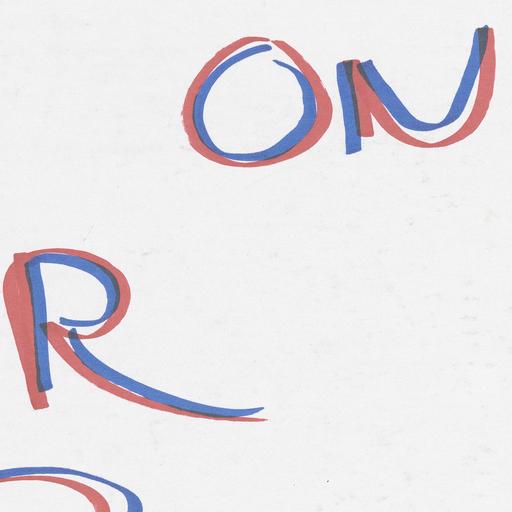 ON
R